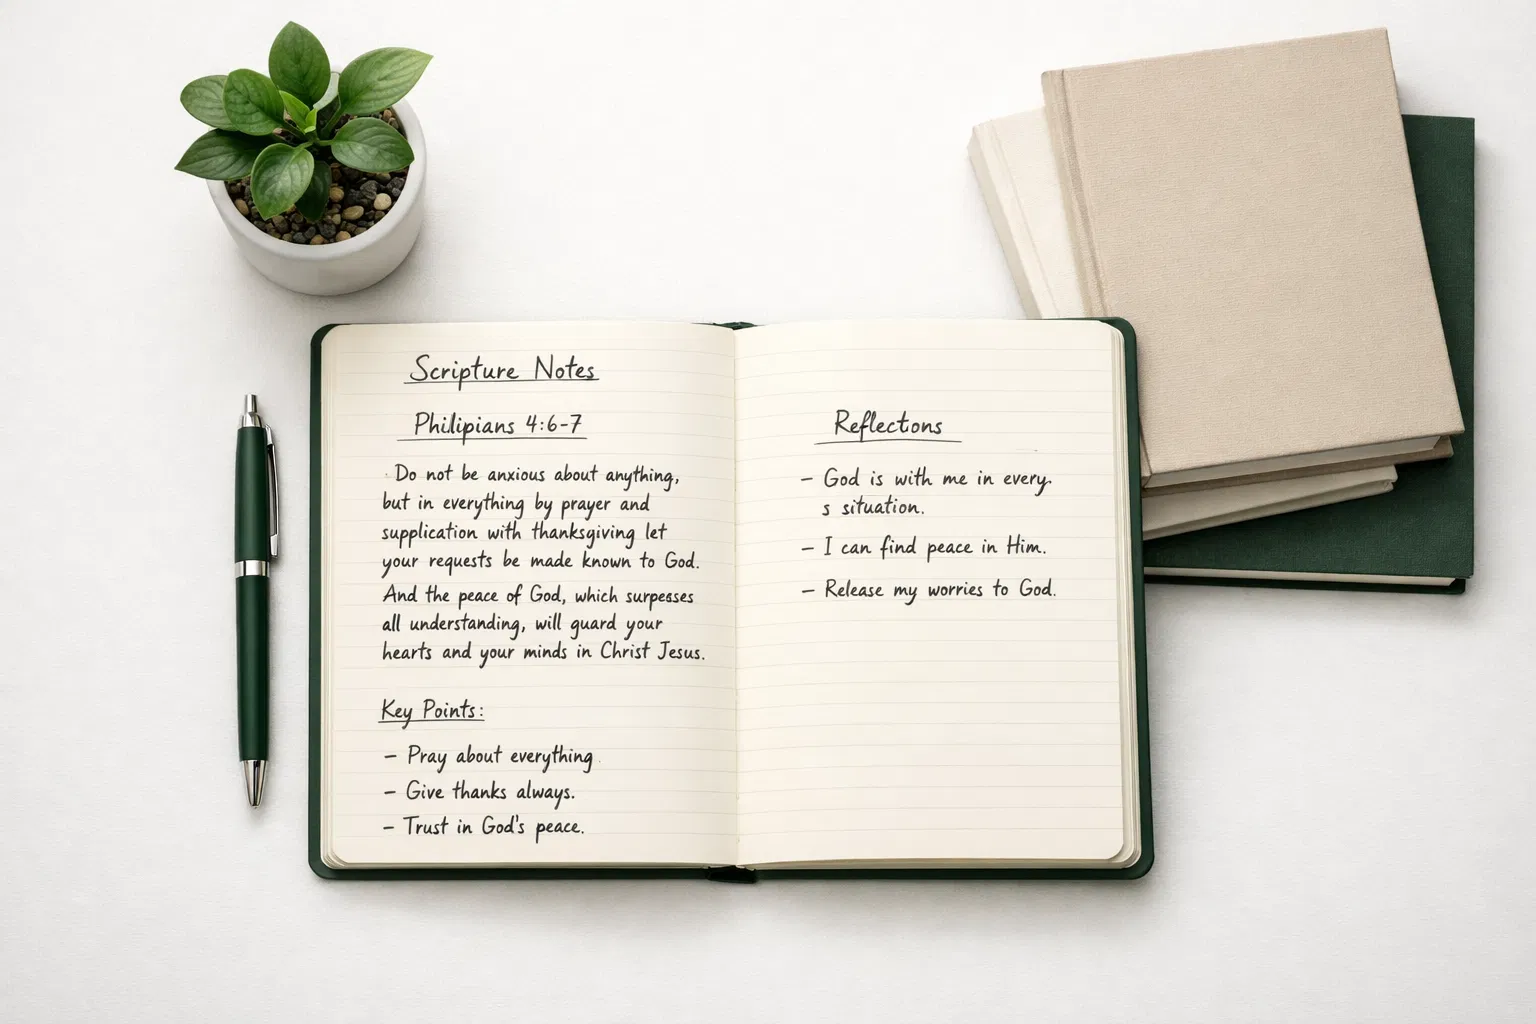 Scripture Notes
Philipians 4:6-7
Do not be anxious about anything,
but in everything by prayer and
supplication with thanksgiving let
your requests be made known to God.
And the peace of God, which surpesses
all understanding, will guard your
hearts and your minds in Christ Jesus.
Key Points:
– Pray about everything
– Give thanks always.
– Trust in God's peace.
Reflections
– God is with me in every.
s situation.
– I can find peace in Him.
– Release my worries to God.